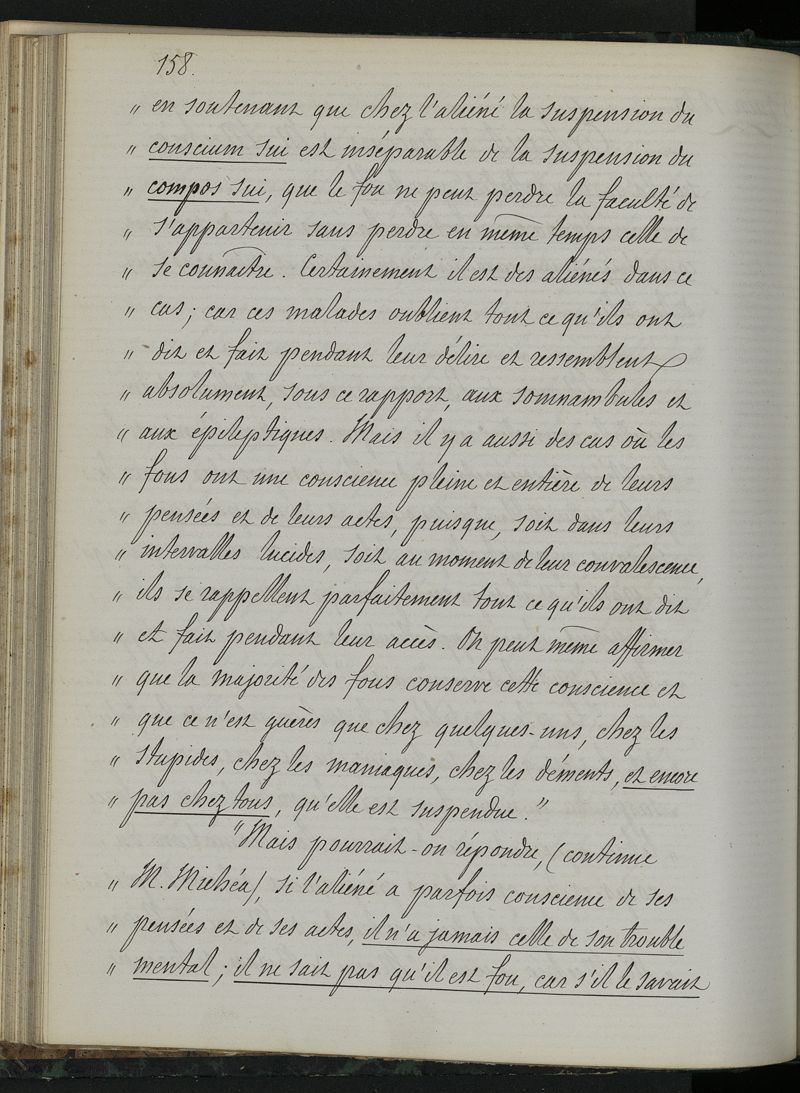 158.
" en soutenant que chez l'aliéné la suspension du
" conscium sui est inséparable de la suspension du
" compos sui, que le fou ne peut perdre la faculté de
" s'appartenir sans perdre en même temps celle de
" se connaître. Certainement il est des aliénés dans ce
" cas; car ces malades oublient tout ce qu'ils ont
" dit et fait pendant leur délire et ressemblent
" absolument, sous ce rapport, aux somnambules et
" aux épileptiques. Mais il y a aussi des cas où les
" fous ont une conscience pleine et entière de leurs
" pensées et de leurs actes, puisque, soit dans leurs
" intervalles lucides, soit au moment de leur convalescence,
" ils se rappellent parfaitement tout ce qu'ils ont dit
" et fait pendant leur accès. On peut même affirmer
" que la majorité des fous conserve cette conscience et
" que ce n'est guères que chez quelques-uns, chez les
" stupides, chez les maniaques, chez les déments, et encore
" pas chez tous, qu'elle est suspendue."
"Mais pourrait-on répondre, (continue
" M. Michéa), si l'aliéné a parfois conscience de ses
" pensées et de ses actes, il n'a jamais celle de son trouble
" mental; il ne sait pas qu'il est fou, car s'il le savait